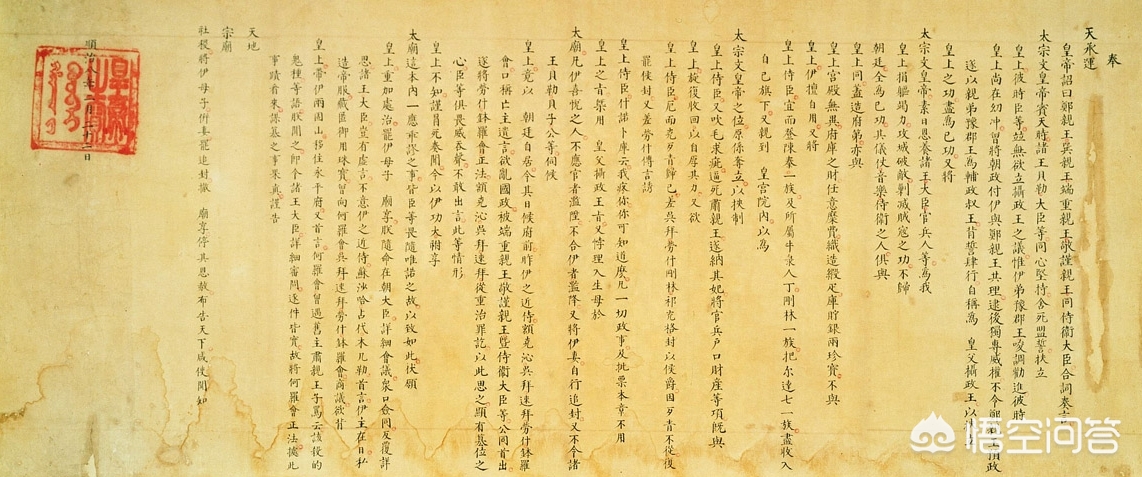 奉
天承運
皇帝詔曰鄭親王巽親王端重親王敬謹親王同侍衛大臣合詞奏言
太宗文皇帝賓天時諸王貝勒大臣等同心堅持舍死盟誓扶立
皇上彼時臣等並無欲立攝政王之議惟伊弟豫郡王唆調勸進彼時
皇上尚在幼冲曾將朝政付伊與鄭親王共理逮後獨專威權不令鄭親王預政
遂以親弟豫郡王為輔政叔王背誓肆行自稱為 皇父攝政王以
皇上之功盡為己功又將
太宗文皇帝素日恩養諸王大臣官兵人等為我
皇上捐軀竭力攻城破敵剿滅賊寇之功不歸
朝廷全為己功其儀仗音樂侍衛之人俱與
皇上同蓋造府第亦與
皇上宮殿無異府庫之財任意糜費織造緞疋庫貯銀兩珍寶不與
皇上伊擅自用又將
皇上侍臣宜而登陳泰一族及所屬牛彔人丁剛林一族把尔達七一族盡收入
自己旗下又親到 皇宮院內以為
太宗文皇帝之位原係奪立以挾制
皇上侍臣又吹毛求疵逼死肅親王遂納其妃將官兵戶口財產等項既與
皇上旋復收回以自厚其力又欲
皇上侍臣厄而克歹青歸己差吳拜勞什剛林祁充格封以侯爵因歹青不從復
罷侯封又差勞什傳言謗
皇上侍臣什諾卜庫云我疼你你可知道麼凡一切政事及批票本章不用
皇上之旨槩用 皇父攝政王旨又悖理入生母於
太廟凡伊喜悅之人不應官者濫陞不合伊者濫降又將伊妻自行追封又不令諸
王貝勒貝子公等伺候
皇上竟以 朝廷自居令其日候府前昨伊之近侍額克沁吳拜速拜勞什鉢羅
會口稱亡主遺言欲亂國政被端重親王敬謹親王曁侍衛大臣等公同首出
遂將勞什鉢羅會正法額克沁吳拜速拜從重治罪訖以此思之顯有篡位之
心臣等俱畏威吞聲不敢出言此等情形
皇上不知謹冒死奏聞今以伊功大祔享
太廟這本內一應乖謬之事皆臣等畏隨唯諾之故以致如此伏願
皇上重加處治罷伊母子 廟享朕隨命在朝大臣詳細會議衆口僉同反覆詳
思諸王大臣豈有虛言不意伊之近侍蘇沙哈占代木凡勒首言伊主在日私
造帝服藏匿御用珠寶曾向何羅會吳拜速拜勞什鉢羅會商議欲背
皇上帶伊兩固山移住永平府又首言何羅會曾遇舊主肅親王子罵云該殺的
鬼種等語朕聞之即令諸王大臣詳細審問逐件皆實故將何羅會正法據此
事蹟看來謀篡之事果真謹告
天地
宗廟
社稷將伊母子併妻罷追封撤 廟享停其恩赦布告天下咸使聞知
順治八年二月二十二日
悟空问答